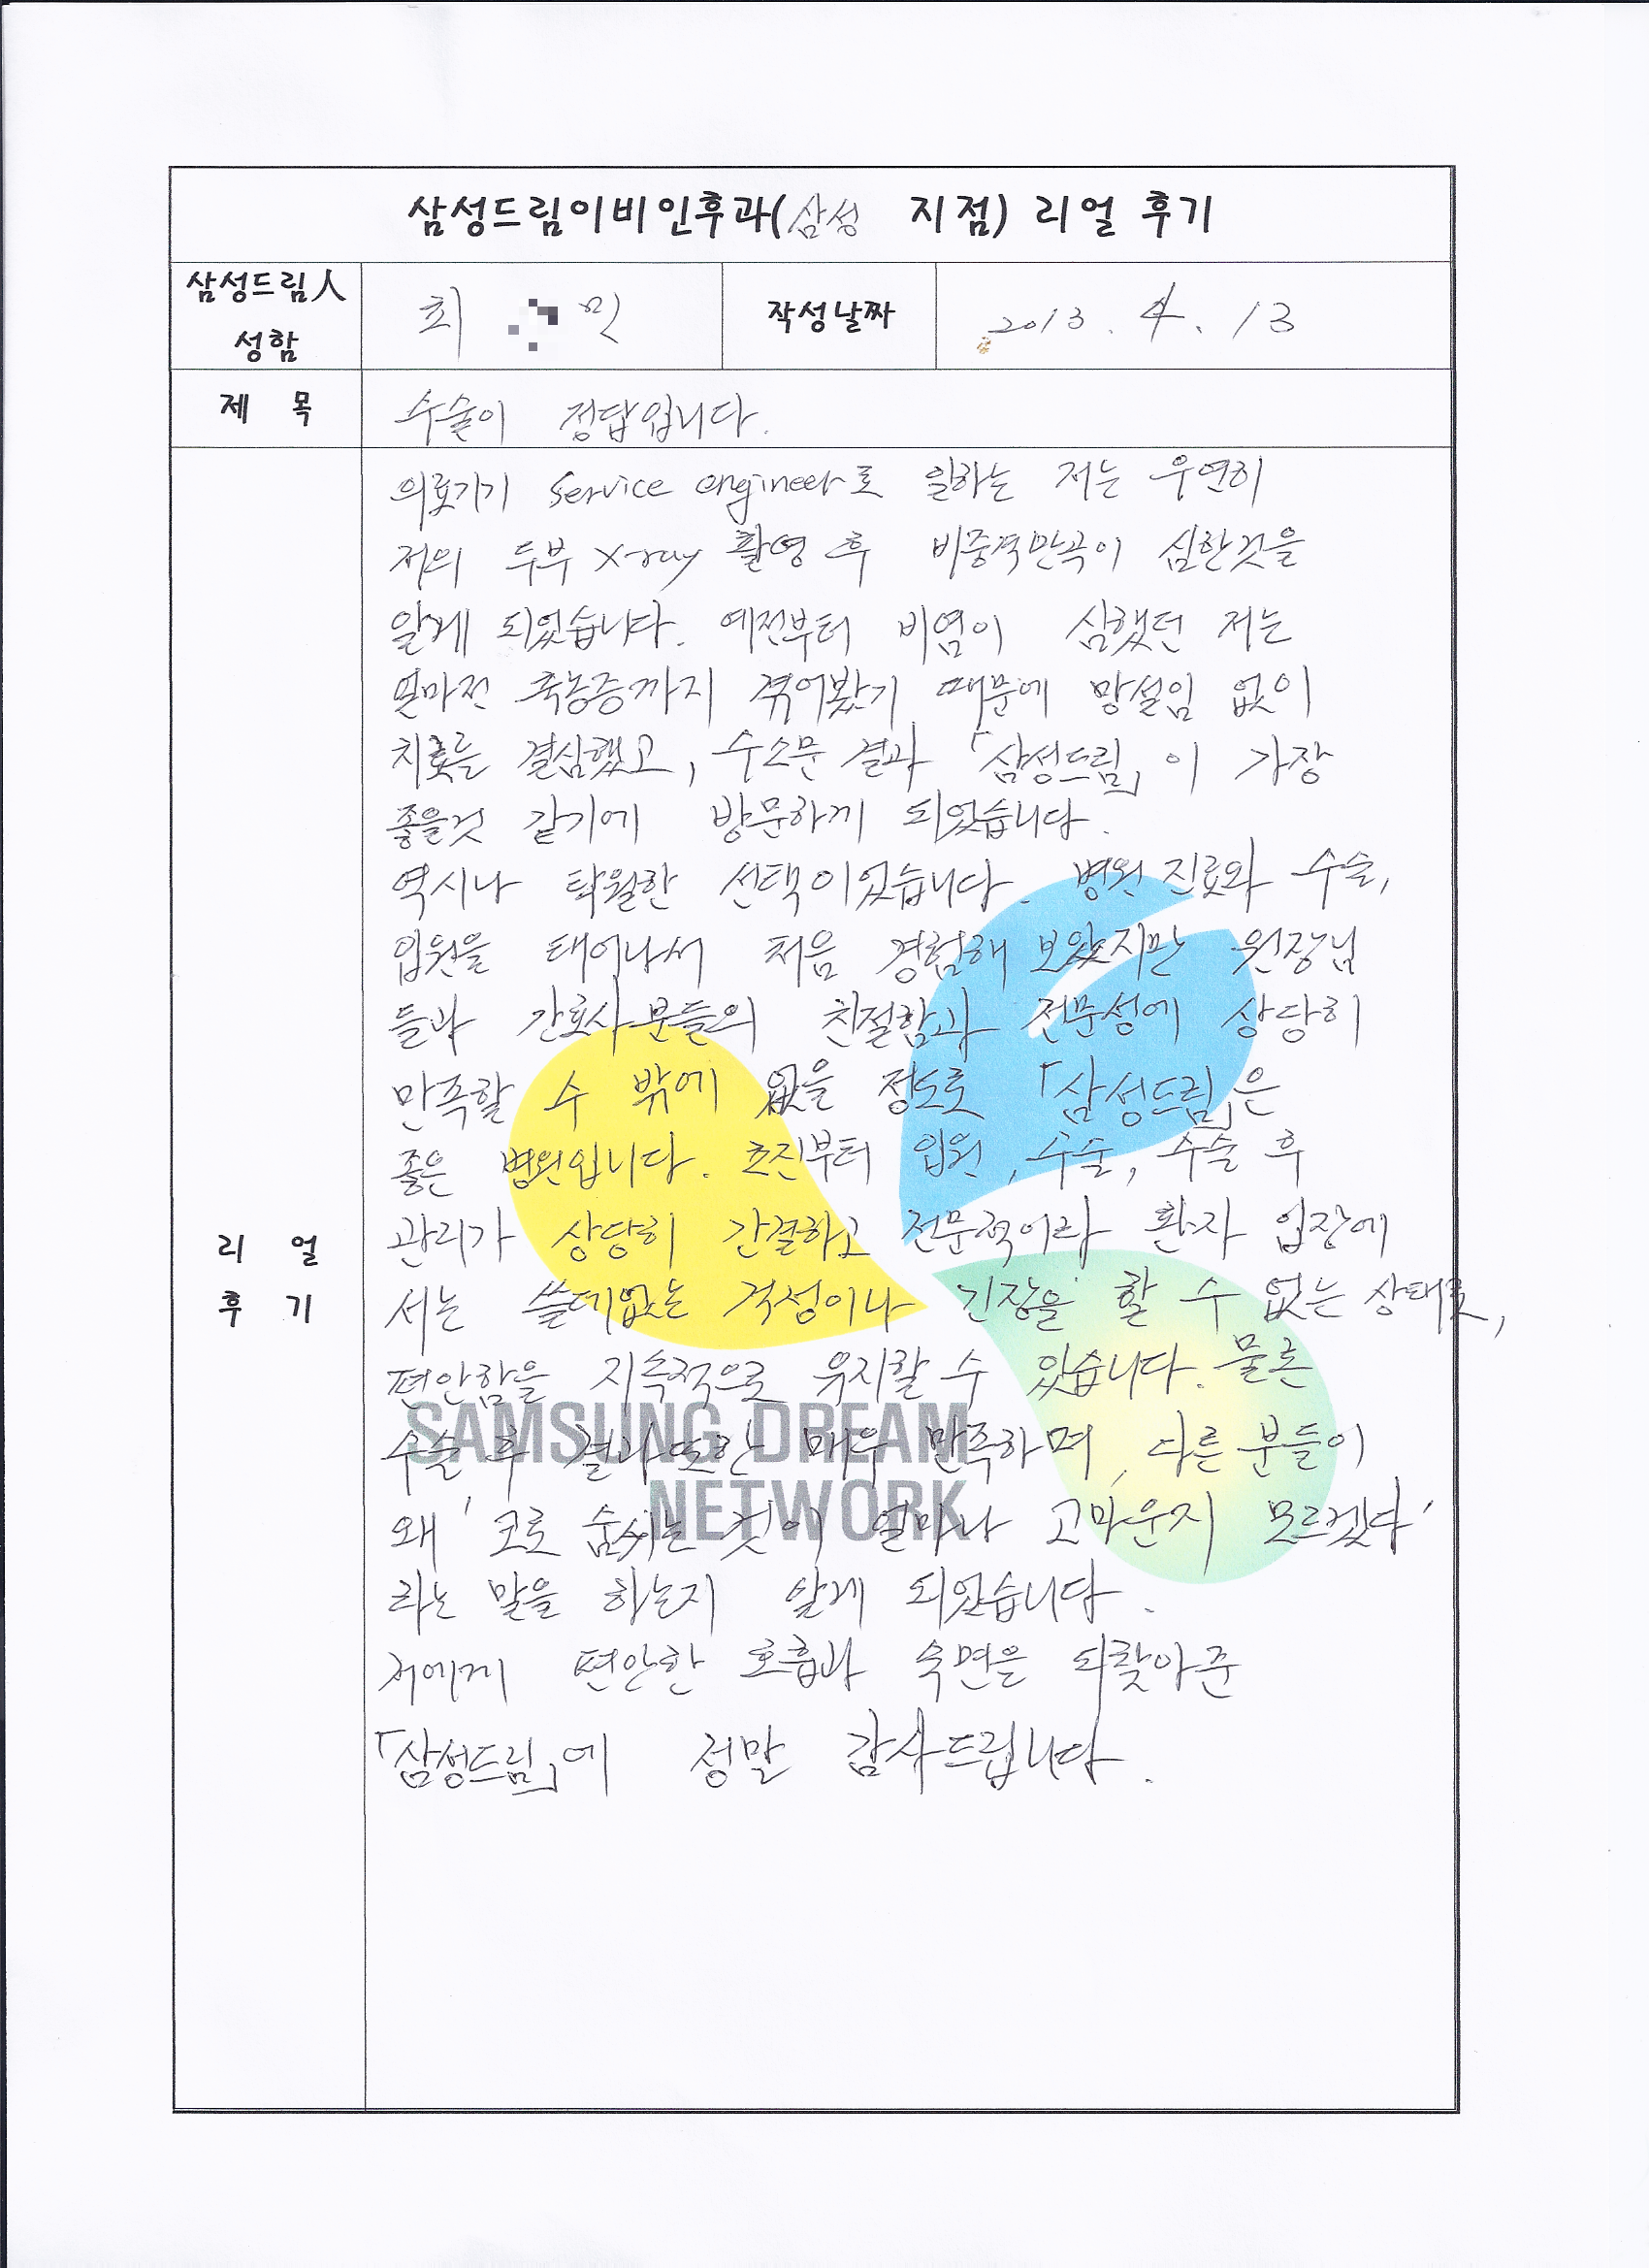 삼성드림이비인후과(삼성 지점) 리얼 후기
삼성드림人 성함
최 민
작성날짜
2013. 4. 13
제 목
수술이 정답입니다.
리 얼 후 기
의료기기 Service engineer로 일하는 저는 우연히
저의 두부 X-ray 촬영 후 비중격만곡이 심한것을
알게 되었습니다. 예전부터 비염이 심했던 저는
얼마전 축농증까지 겪어봤기 때문에 망설임 없이
치료를 결심했고, 수소문 결과 「삼성드림」이 가장
좋을것 같기에 방문하게 되었습니다.
역시나 탁월한 선택이었습니다. 병원 진료와 수술,
입원을 태어나서 처음 경험해 보았지만 원장님
들과 간호사분들의 친절함과 전문성에 상당히
만족할 수 밖에 없을 정도로 「삼성드림」은
좋은 병원입니다. 초진부터 입원, 수술, 수술 후
관리가 상당히 간결하고 전문적이라 환자 입장에
서는 쓸데없는 걱정이나 긴장을 할 수 없는 상태로,
편안함을 지속적으로 유지할 수 있습니다. 물론
수술 후 결과 또한 매우 만족하며, 다른 분들이
왜 '코로 숨쉬는 것이 얼마나 고마운지 모르겠다'
라는 말을 하는지 알게 되었습니다.
저에게 편안한 호흡과 숙면을 되찾아준
「삼성드림」에 정말 감사드립니다.
SAMSUNG DREAM
NETWORK